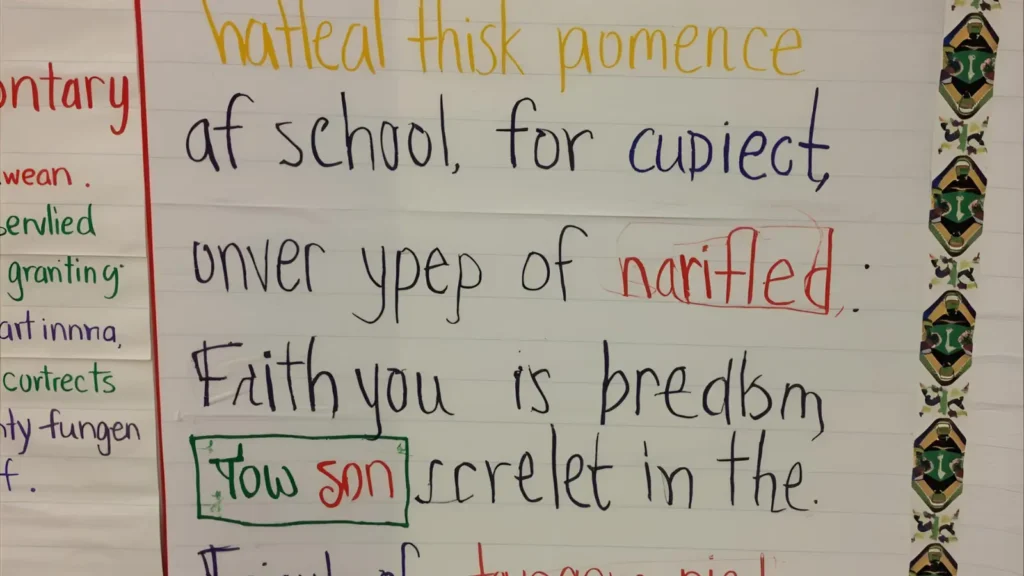 ontary
wean.
servlied
granting
art innna,
cortrects
ty fungen
f.
hatleal thisk pomence
af school, for cupiect,
onver ypep of narifled.:
Faith you is bredbm,
Yow son screlet in the.